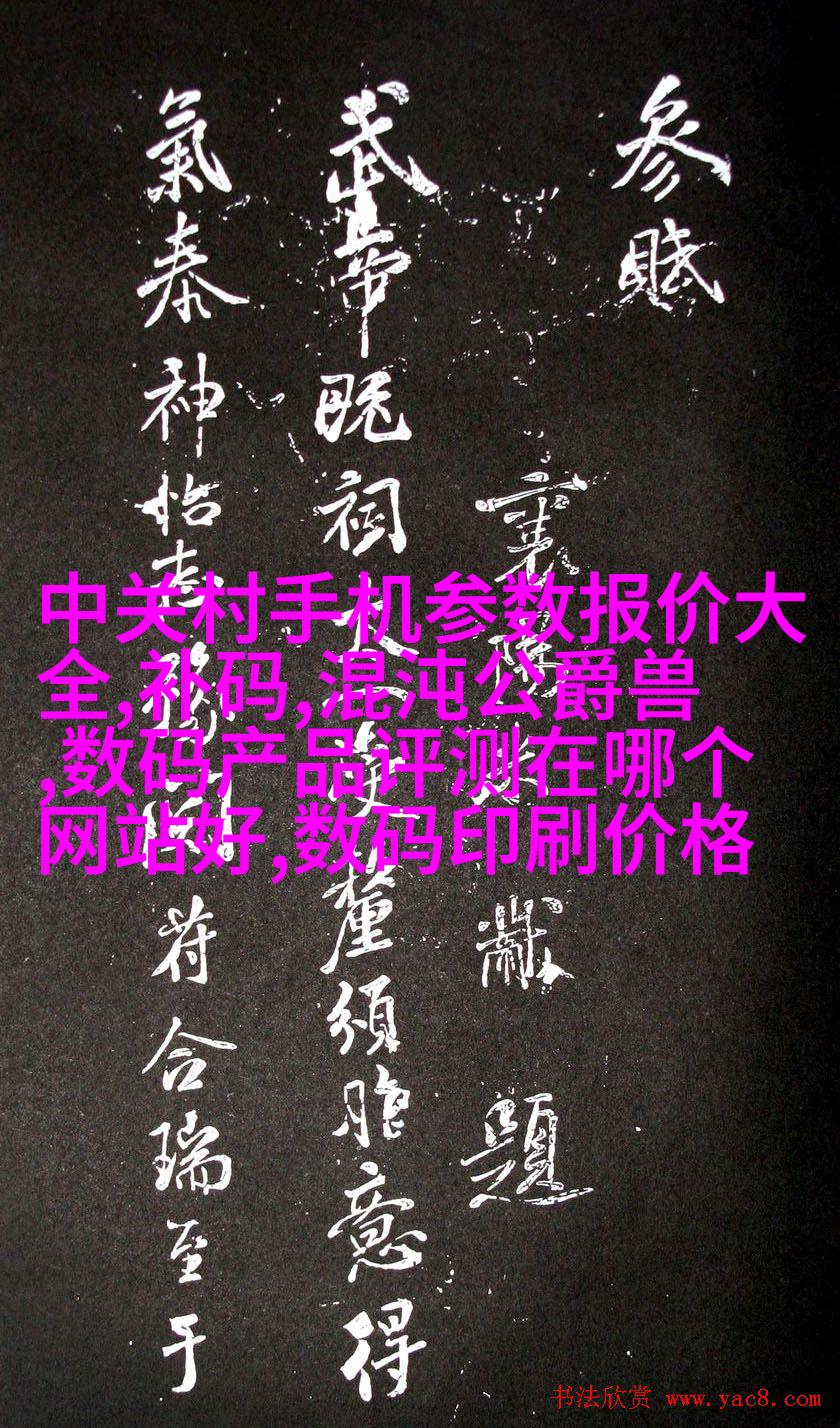 参賦
襄陽米黻題
武帝既祠太一受釐頒胙意得
氣泰神怡志豫
符合瑞至于
中关村手机参数报价大
全,补码,混沌公爵兽
,数码产品评测在哪个
网站好,数码印刷价格
书法欣赏 www.yac8.com